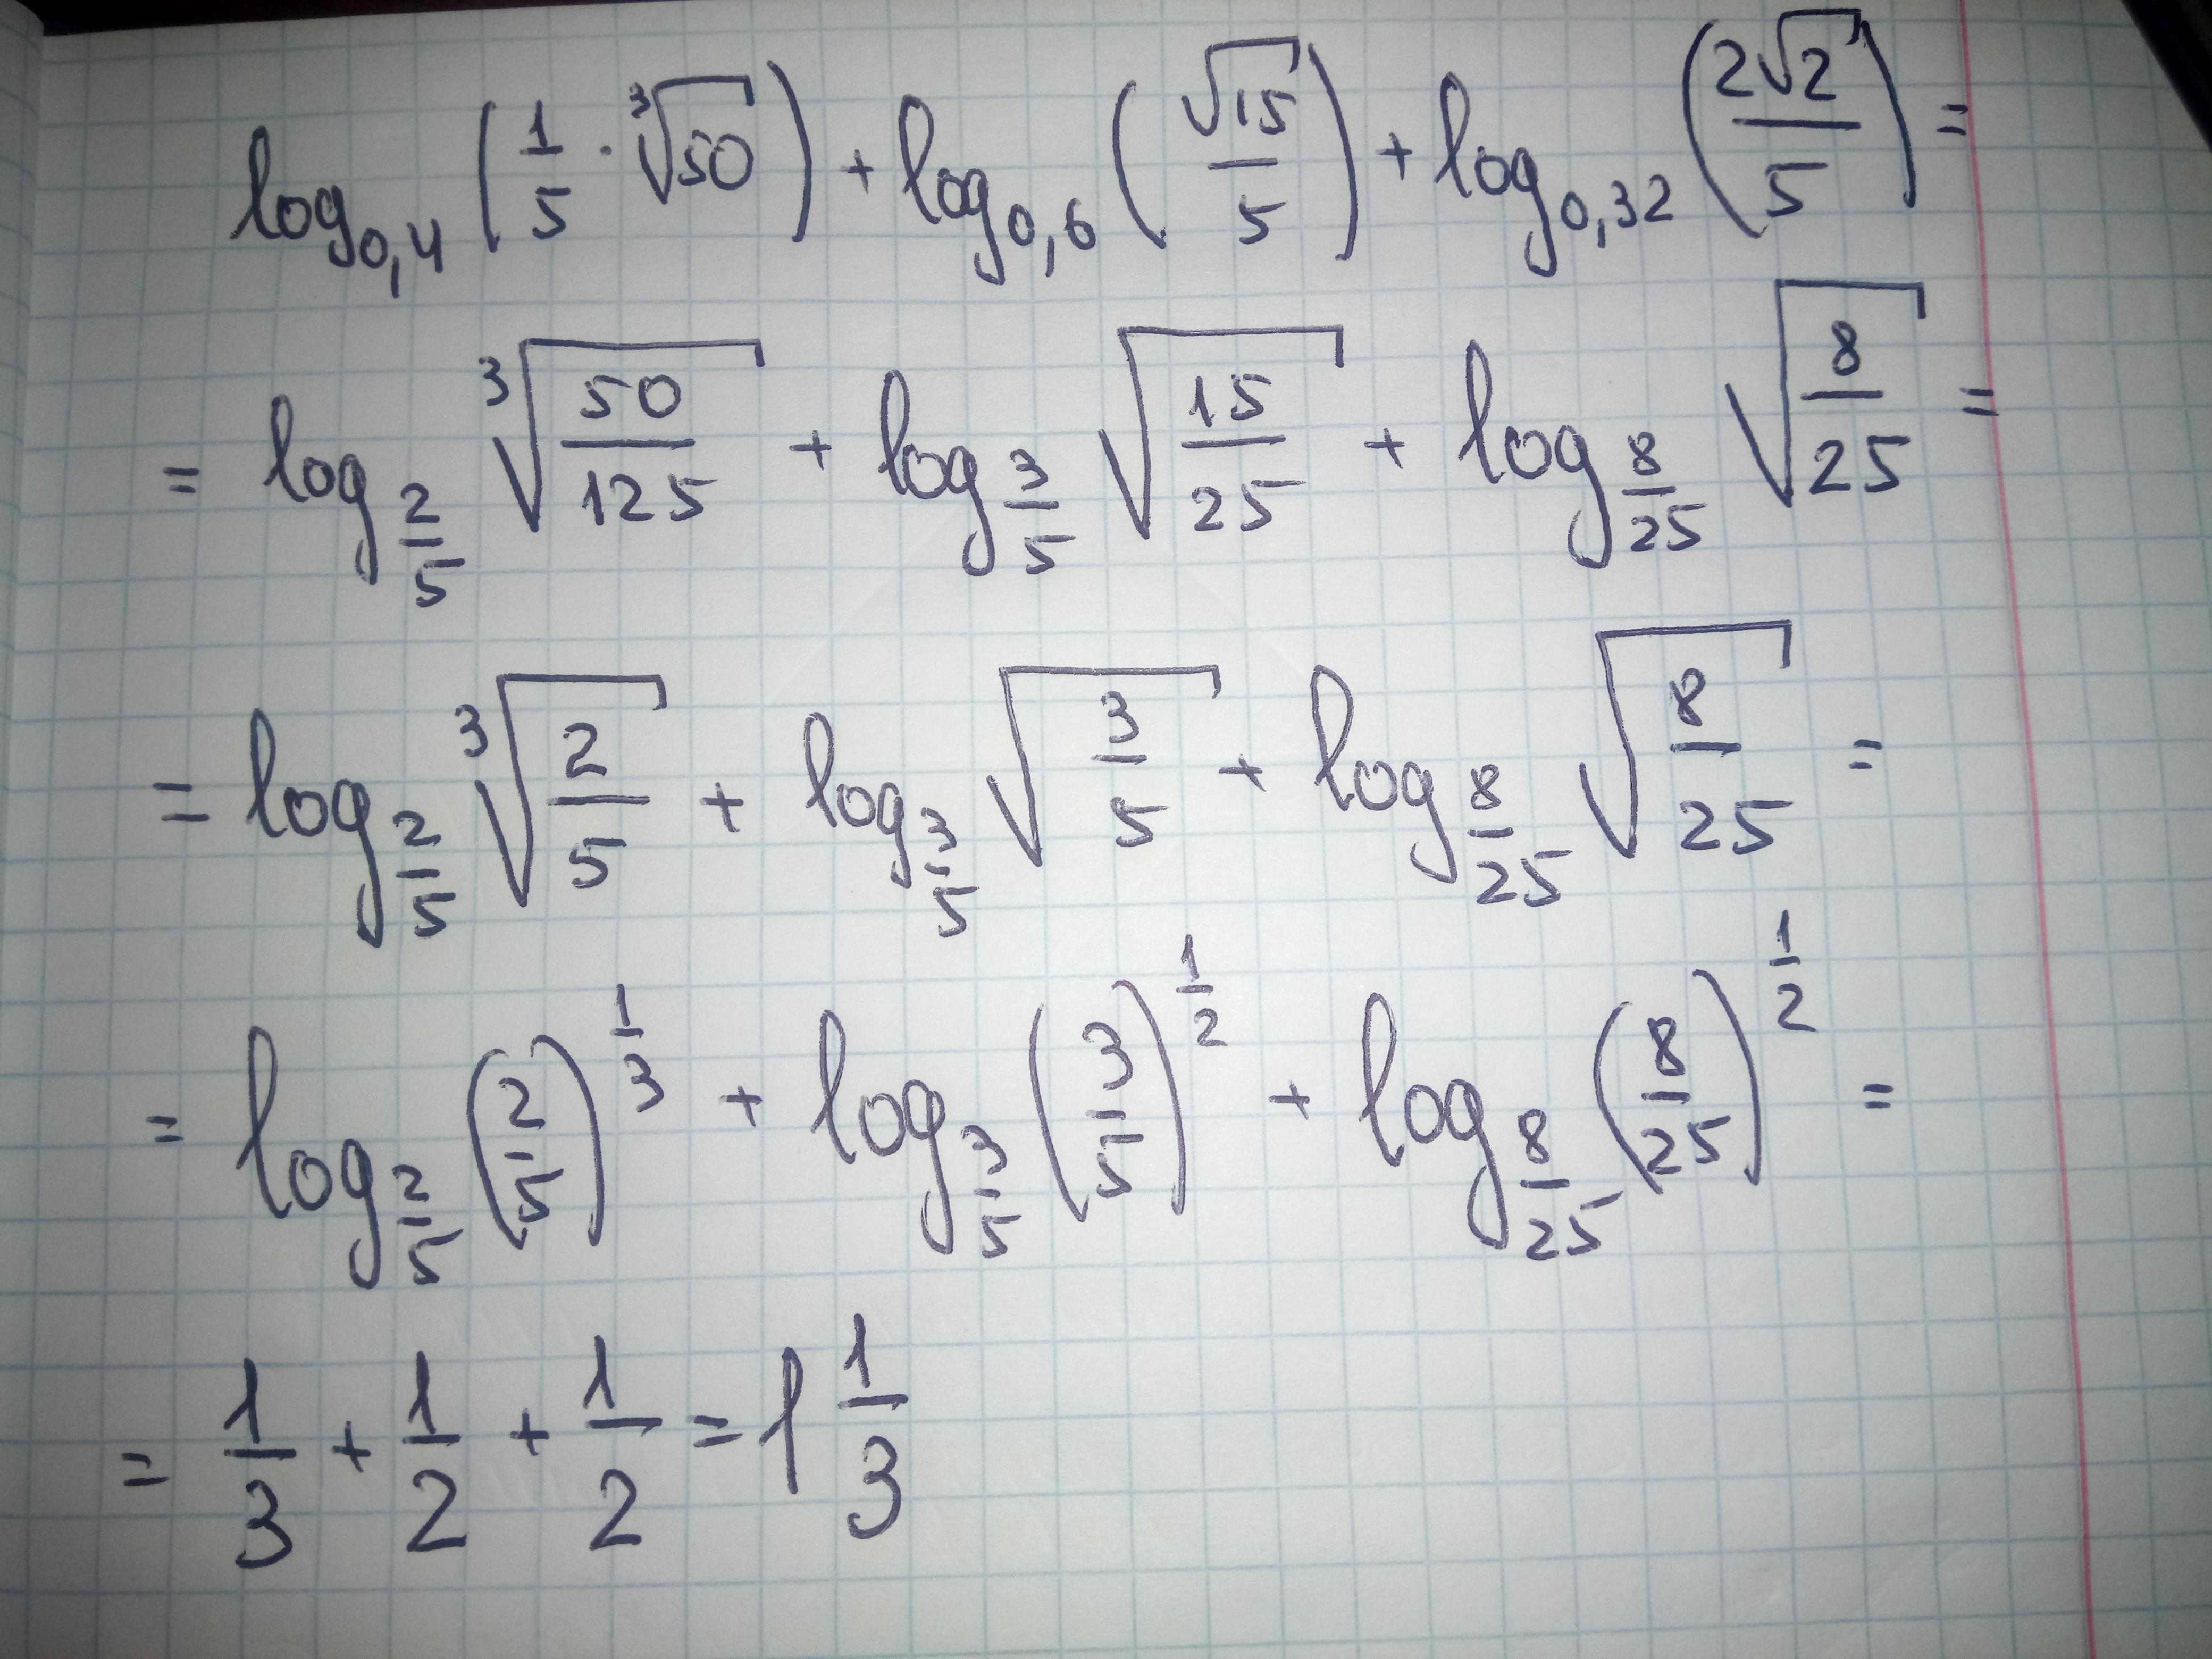 log_{0,4} (1/5 · ∛50) + log_{0,6} (√15/5) + log_{0,32} (2√2/5) =
= log_{2/5} ∛(50/125) + log_{3/5} √(15/25) + log_{8/25} √(8/25) =
= log_{2/5} ∛(2/5) + log_{3/5} √(3/5) + log_{8/25} √(8/25) =
= log_{2/5} (2/5)^{1/3} + log_{3/5} (3/5)^{1/2} + log_{8/25} (8/25)^{1/2} =
= 1/3 + 1/2 + 1/2 = 1 1/3